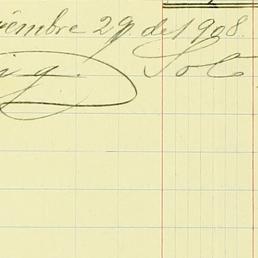 viémbre 29, de 1908.
ig. Sot